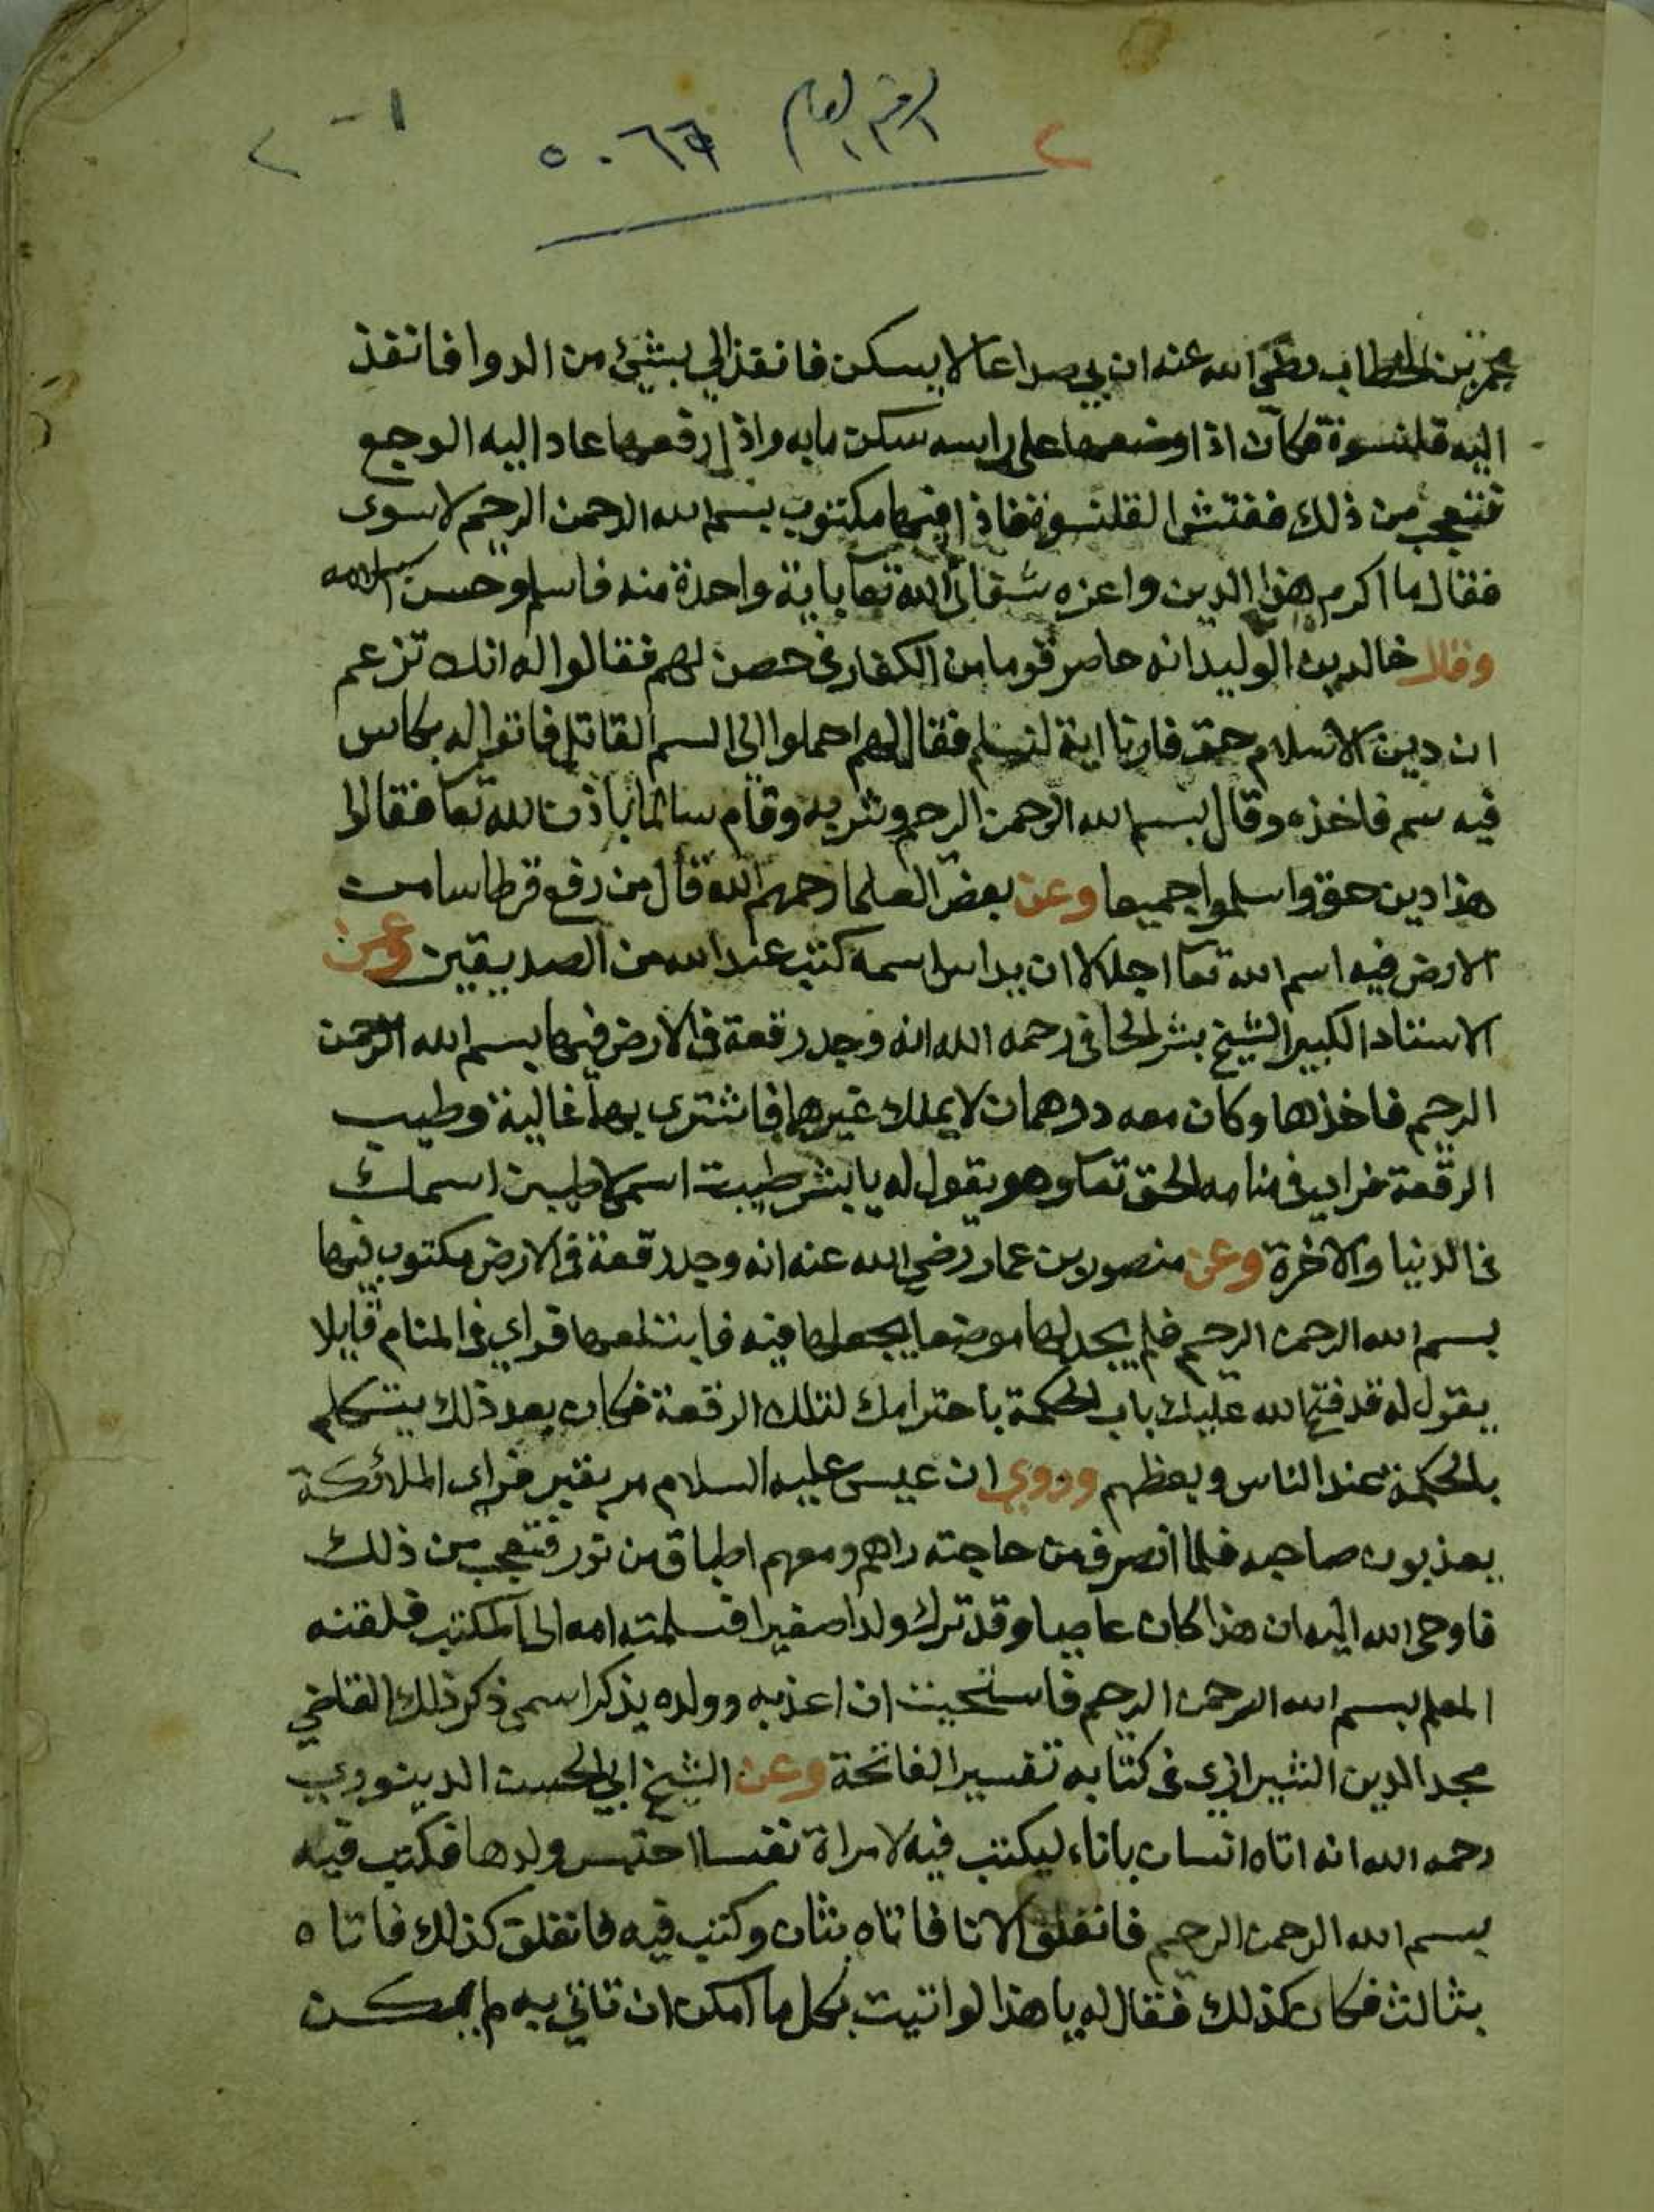 ١ - ٢
الرقم العام ٥٠٦٦
٢
عمر بن الخطاب رضي الله عنه ان بي صداعا لا يسكن فانفذ الي بشيئ من الدوا فانفذ
اليه قلنسوة فكان اذا وضعها على راسه سكن ما به واذا رفعها عاد اليه الوجع
فتعجب من ذلك ففتش القلنسوة فاذا فيها مكتوب بسم الله الرحمن الرحيم لا سوى
فقال ما اكرم هذا الدين واعزه شفاني الله تعا باية واحدة منه فاسلم وحسن اسلامه
خالد بن الوليد انه حاصر قوما من الكفار في حصن لهم فقالوا له انك تزعم
ان دين الاسلام حق فارنا اية لنسلم فقال لهم احملوا الى السم القاتل فاتوا له بكاس
فيه سم فاخذه وقال بسم الله الرحمن الرحيم وشربه وقام سالما باذن الله تعا فقالوا
هذا دين حق واسلموا جميعا وعن بعض العلما رحمهم الله قال من رفع قرطاسا من
الارض فيه اسم الله تعا اجلالا ان يداس اسمه كتب عند الله من الصديقين وعن
الاستاد الكبير الشيخ بشر الحافي رحمه الله انه وجد رقعة في الارض فيها بسم الله الرحمن
الرحيم فاخذها وكان معه درهمان لا يملك غيرهما فاشترى بهما غالية وطيب
الرقعة فراى في منامه الحق تعا وهو يقول له يا بشر طيبت اسمي لاطيبن اسمك
في الدنيا والاخرة وعن منصور بن عمار رضي الله عنه انه وجد رقعة في الارض مكتوب فيها
بسم الله الرحمن الرحيم فلم يجد لها موضعا يجعلها فيه فابتلعها فراي في المنام قايلا
يقول له قد فتح الله عليك باب الحكمة باحترامك لتلك الرقعة فكان بعد ذلك يتكلم
بالحكمة عند الناس ويعظهم وروي ان عيسى عليه السلام مر بقبر فراى الملائكة
يعذبون صاحبه فلما انصرف من حاجته راهم ومعهم اطباق من نور فتعجب من ذلك
فاوحى الله اليه ان هذا كان عاصيا وقد ترك ولدا صغيرا فسلمته امه الى المكتب فلقنه
المعلم بسم الله الرحمن الرحيم فاستحيت ان اعذبه وولده يذكر اسمى ذكر ذلك القاضي
مجد الدين الشيرازي في كتابه تفسير الفاتحة وعن الشيخ ابي الحسن الدينوري
رحمه الله انه اتاه انسان باناء ليكتب فيه لامراة نفسا احتبس ولدها فكتب فيه
بسم الله الرحمن الرحيم فانفلق الانا فاتاه بثان وكتب فيه فانفلق كذلك فاتاه
بثالث فكان كذلك فقال له يا هذا لو اتيت بكل ما امكن ان تاتي به لم يمكن